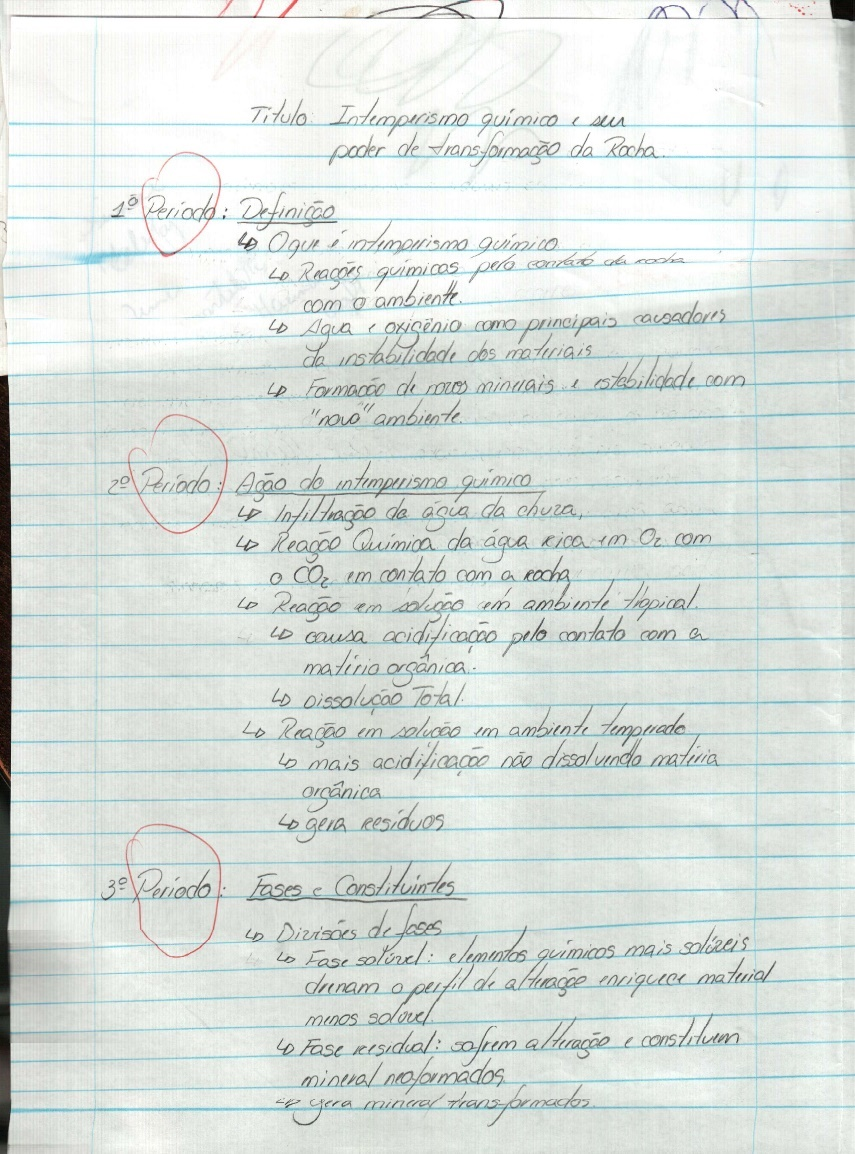 Título: Intemperismo químico e seu
poder de transformação da Rocha.
1º Período: Definição
↳ Oque é intemperismo químico
↳ Reações químicas pelo contato da rocha
com o ambiente.
↳ Agua e oxigênio como principais causadores
da instabilidade dos materiais
↳ Formação de novos minerais e estabilidade com
"novo" ambiente.
2º Período: Ação do intemperismo químico
↳ Infiltração da água da chuva,
↳ Reação Química da água rica em O2 com
o CO2 em contato com a rocha
↳ Reação em solução em ambiente tropical.
↳ causa acidificação pelo contato com a
matério orgânica.
↳ Dissolução Total.
↳ Reação em solução em ambiente temperado
↳ mais acidificação não dissolvendo matéria
orgânica
↳ gera resíduos
3º Período: Fases e Constituintes
↳ Divisões de fases
↳ Fase solúvel: elementos químicos mais solúveis
drenam o perfil de alteração enriquece material
menos solúvel
↳ Fase residual: sofrem alteração e constituem
mineral neoformados.
↳ gera mineral transformados.